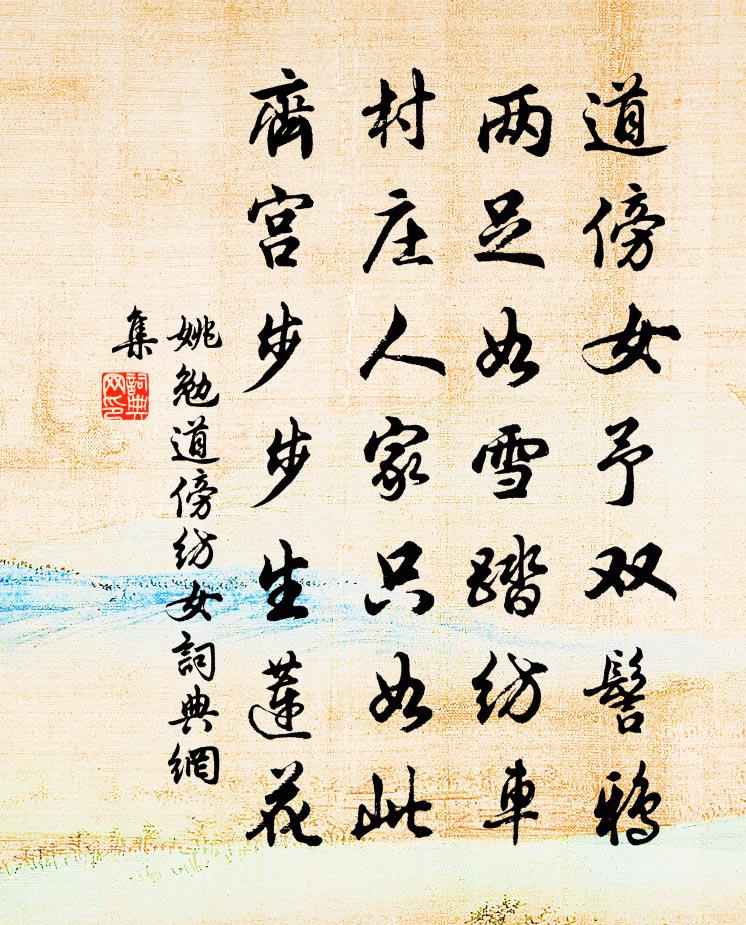 道傍女予双髻鸦
两足如雪踏纺车
村庄人家只如此
齊宫步步生蓮花
姚勉道傍纺女詞典網
集
詞典
网印